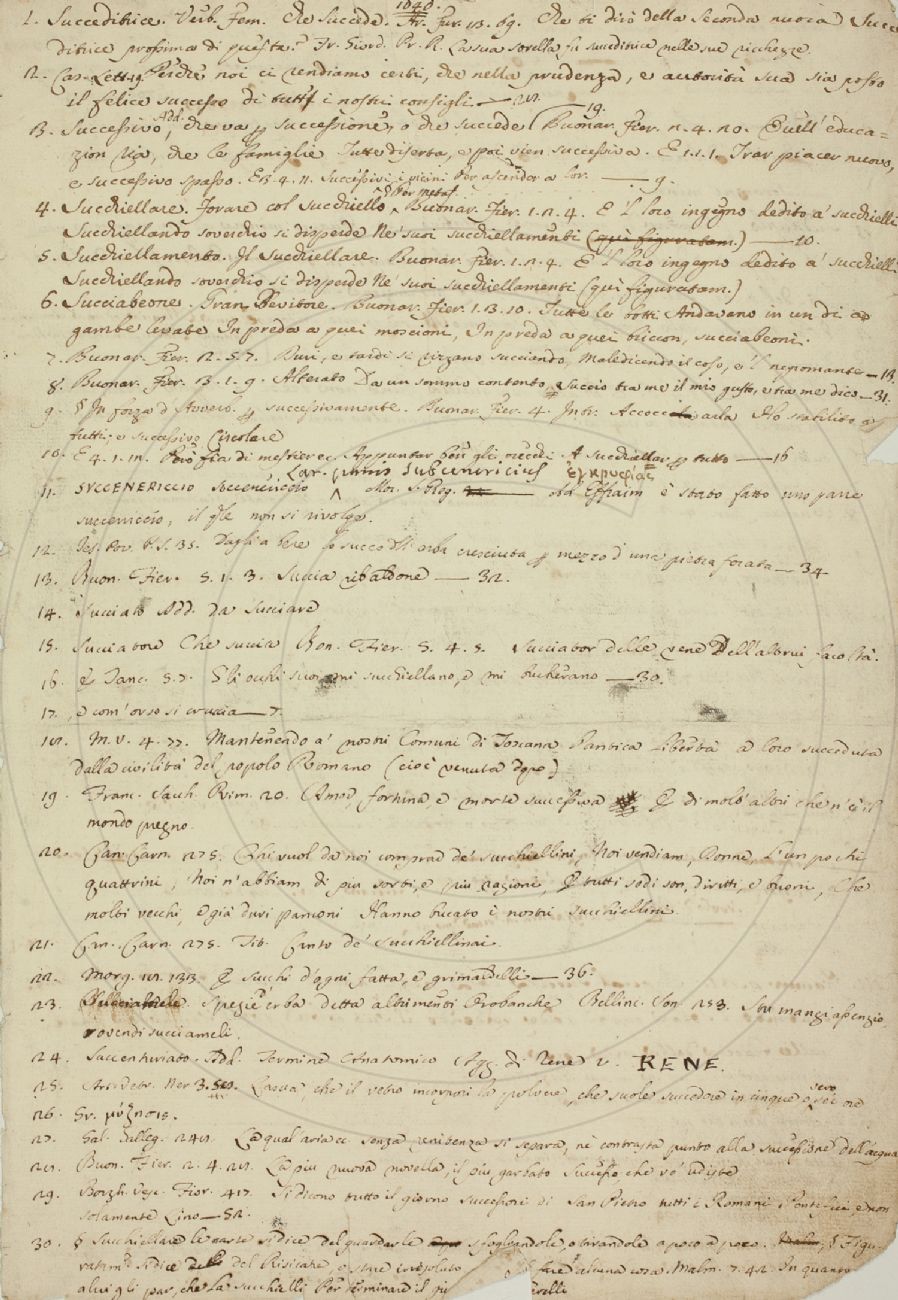 1040.
1. Succeditrice. Verb. Fem. Che Succede. Fr. Fur. 13. 69. Che ti dirò della Seconda nuova Succe
ditrice prossima di queste? Fr. Giord. Pr. R. La sua sorella fu succeditrice nelle sue ricchezze.
2. Cas. Lett. 19. Perchè noi ci rendiamo certi, che nella prudenza, e autorità sua sia posto
il felice successo di tutti i nostri consigli. —
3. Successivo Add. che va successione, o che succede Buonar. Fier. 2. 4. 20. Quell' educa-
zion, che le famiglie Tutte diserta, e poi vien successiva. E 1. 1. 1. Trar piacer nuovo,
e successivo spasso. E 3. 4. 11. Successivi i vicini Per ascender a lor. — 9.
4. Succhiellare. Forare col Succhiello § Per metaf. Buonar. Fier. 1. 2. 4. E 'l loro ingegno dedito a' succhielli
Succhiellando soverchio si disperde Ne' suoi succhiellamenti (qui figuratam.) — 10.
5. Succhiellamento. Il Succhiellare. Buonar. Fier. 1. 2. 4. E 'l loro ingegno dedito a' succhielli
Succhiellando soverchio si disperde Ne' suoi succhiellamenti (qui figuratam.)
6. Succiabeone. Gran Bevitore. Buonar. Fier. 1. 3. 10. Tutte le botti Andavano in un dì a
gambe levate In preda a quei moscioni, In preda a quei briccon, succiabeoni.
7. Buonar. Fier. 2. 5. 7. Duri, e tardi si rizzano succiando, Maledicendo il coso, e 'l nepomante —
8. Buonar. Fier. 3. 1. 9. Alterato Da un sommo contento, succio tra me il mio gusto, e tra me dico — 31.
9. § In forza d'Avverb. successivamente. Buonar. Fier. 4. Intr. Ho stabilito a
tutti, e successivo Circolare
10. E 4. 1. 12. Però fia di mestier ec. Appuntar ben gli orecchi, A Succhiellar tutto — 16
Lat. panis subcinericius ἐγκρυφίας
11. SUCCENERICCIO succenericcio Mor. S. Greg. Ed Effraim è stato fatto uno pane
succenericcio, il qle non si rivolge.
12. Tes. Pov. P. S. 35. Dagli a bere lo succo dell' erba cresciuta mezzo d'una pietra forata — 34
13. Buon. Fier. 5. 1. 3. Succia ribaldone — 32.
14. Succiato Add. da Succiare
15. Succiatore Che succia Bon. Fier. 5. 4. 3. Succiator delle vene Dell' altrui facoltà.
16. E Tanc. 5. 7. Gli occhi suoi mi succhiellano, e mi bucherano — 30.
17. e com' orso si cruccia — 7.
18. M. V. 4. 77. Mantenendo a' nostri Comuni di Toscana l'antica libertà a loro succeduta
dalla civilità del popolo Romano (cioè venuta dopo)
19. Franc. Sacch. Rim. 20. Amor fortuna, e morte successiva E di molt' altri che n' è il
mondo pregno.
20. Can. Carn. 275. Chi vuol da noi comprar de' succhiellini, Noi vendiam, Donne, l'un pochi
quattrini, Noi n' abbiam di più sorti, e più ragioni, E tutti sodi son, diritti, e buoni, Che
molti vecchi, e già duri panconi Hanno bucato i nostri succhiellini.
21. Can. Carn. 275. Tit. Canto de' Succhiellinai.
22. Morg. 18. 133. E succhi d'ogni fatta, e grimaldelli — 36.
23. Spezie erba detta altrimenti Orobanche Bellinc. Son. 253. S tu mangi apenzio
rovendi succiameli.
24. Succenturiato. Add. Termine Anatomico Agg. di Rene v. RENE.
25. Art. Vetr. Ner. 3. Lascia, che il vetro incorpori la polvere, che suole succedere in cinque, o vero sei ore
26. Gr. μύζησις.
27. Gal. Gallegg. 248. La qual' aria ec. senza renitenza si separa, nè contrasta punto alla successione dell' acqua
28. Buon. Fier. 2. 4. 28. La più nuova novella, il più garbato Successo, che v' udiste
29. Borgh. Vesc. Fior. 417. Si dicono tutto il giorno successori di San Pietro tutti i Romani Pontefici e non
solamente Lino — 52.
30. § Succhiellare le carte si dice del guardarle sfogliandole, o tirandole a poco a poco. § Figu-
ratam. si dice del Risicare, o stare in fare alcuna cosa. Malm. 7. 42. In quanto
a lui gli par, che la succhielli Per terminare il